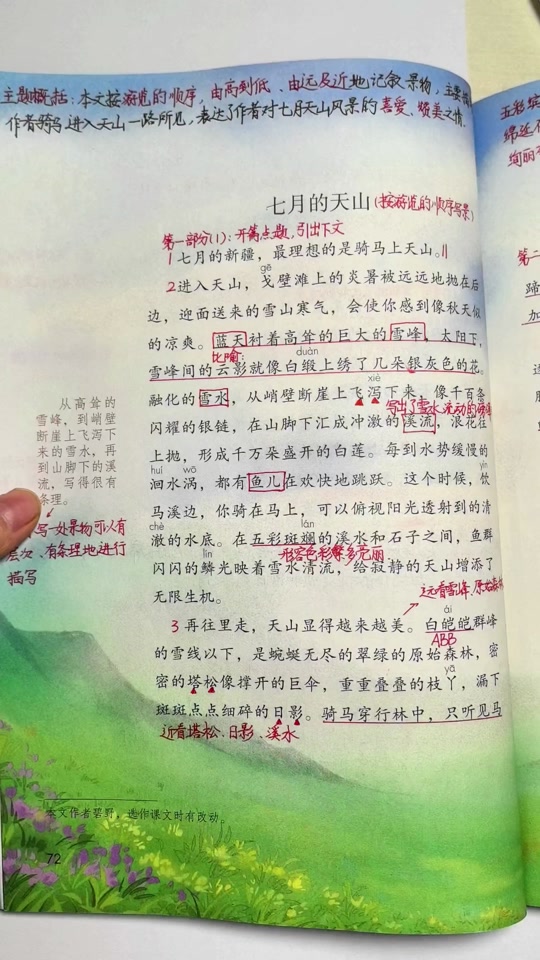 主题概括:本文按游览的顺序,由高到低、由远及近地记叙景物,主要
作者骑马进入天山一路所见,表达了作者对七月天山风景的喜爱、赞美之情。
七月的天山(按游览的顺序写景)
第一部分(1):开篇点题,引出下文
1七月的新疆,最理想的是骑马上天山。||
gē
2进入天山,戈壁滩上的炎暑被远远地抛在后
边,迎面送来的雪山寒气,会使你感到像秋天似
的凉爽。蓝天衬着高耸的巨大的雪峰,太阳下,
比喻: duàn
雪峰间的云影就像白缎上绣了几朵银灰色的花。
xiè
融化的雪水,从峭壁断崖上飞泻下来,像千百条
写出了雪水流动的
闪耀的银链,在山脚下汇成冲激的溪流,浪花往
上抛,形成千万朵盛开的白莲。每到水势缓慢的
huí wō yìn
洄水涡,都有鱼儿在欢快地跳跃。这个时候,饮
马溪边,你骑在马上,可以俯视阳光透射到的清
chè lán
澈的水底。在五彩斑斓的溪水和石子之间,鱼群
lín 形容色彩繁多亮丽
闪闪的鳞光映着雪水清流,给寂静的天山增添了
无限生机。
远看雪峰、原始森林
ái
3再往里走,天山显得越来越美。白皑皑群峰
ABB
的雪线以下,是蜿蜒无尽的翠绿的原始森林,密
yā
密的塔松像撑开的巨伞,重重叠叠的枝丫,漏下
斑斑点点细碎的日影。骑马穿行林中,只听见马
近看塔松、日影、溪水
从高耸的
雪峰,到峭壁
断崖上飞泻下
来的雪水,再
到山脚下的溪
流,写得很有
条理。
写一处景物可以有
层次、有条理地进行
描写
本文作者碧野,选作课文时有改动。
72
五彩缤
绵延
绚丽
第二
蹄
加